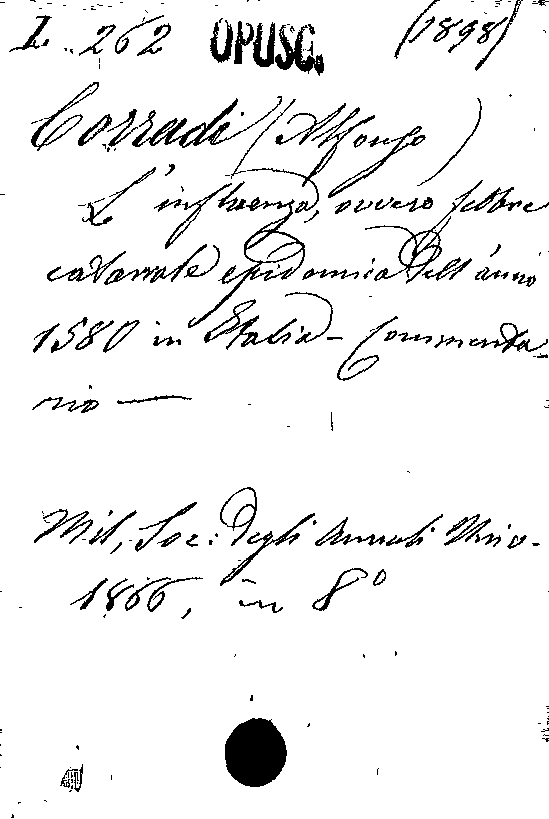 I. 262 OPUSC. (1898)
Corradi (Alfonso)
L'influenza, ovvero febbre
catarrale epidemica dell'anno
1580 in Italia – Commenta-
rio —
Mil, Soc: degli Annali Univ.
1866, in 8°